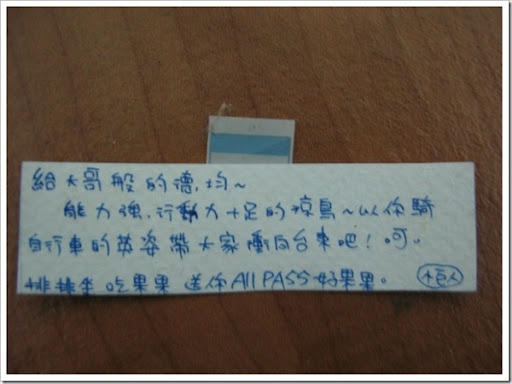 給大哥般的德.均~
能力強.行動力十足的掠鳥~以你騎
自行車的英姿帶大家衝回台東吧!呵。
排排坐吃果果 送你All PASS好果果。